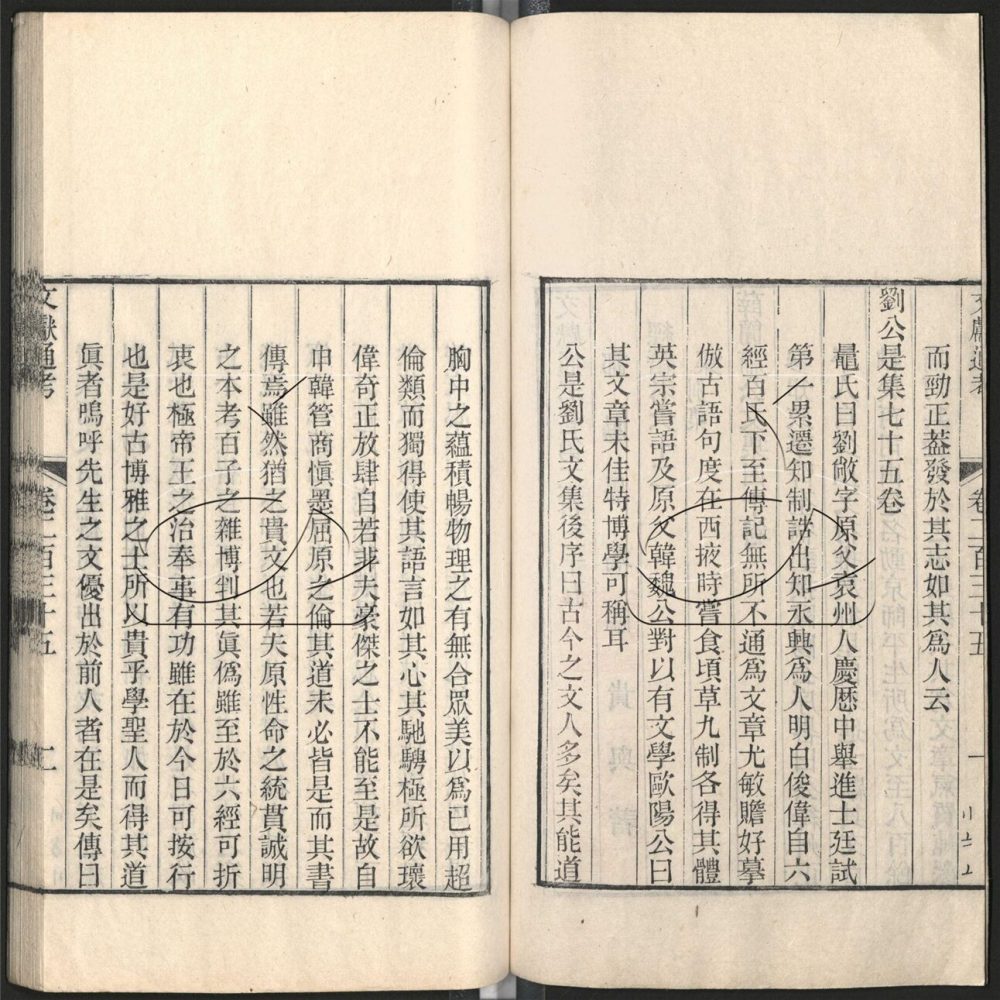 而勁正葢發於其志如其爲人云
劉公是集七十五卷
鼂氏曰劉敞字原父袁州人慶歷中舉進士廷試
第一累遷知制誥出知永興爲人明白俊偉自六
經百氏下至傳記無所不通爲文章尤敏贍好摹
倣古語句度在西掖時嘗食頃草九制各得其體
英宗嘗語及原父韓魏公對以有文學歐陽公曰
其文章未佳特博學可稱耳
公是劉氏文集後序曰古今之文人多矣其能道
胸中之蘊積暢物理之有無合眾美以爲已用超
倫類而獨得使其語言如其心其馳騁極所欲瓌
偉奇正放肆自若非夫豪傑之士不能至是故自
申韓管商愼墨屈原之倫其道未必皆是而其書
傳焉雖然猶之貴文也若夫原性命之統貫誠明
之本考百子之雜博判其眞僞雖至於六經可折
衷也極帝王之治奉事有功雖在於今日可按行
也是好古博雅之士所以貴乎學聖人而得其道
眞者嗚呼先生之文優出於前人者在是矣傳曰
文獻通考 卷二百三十五